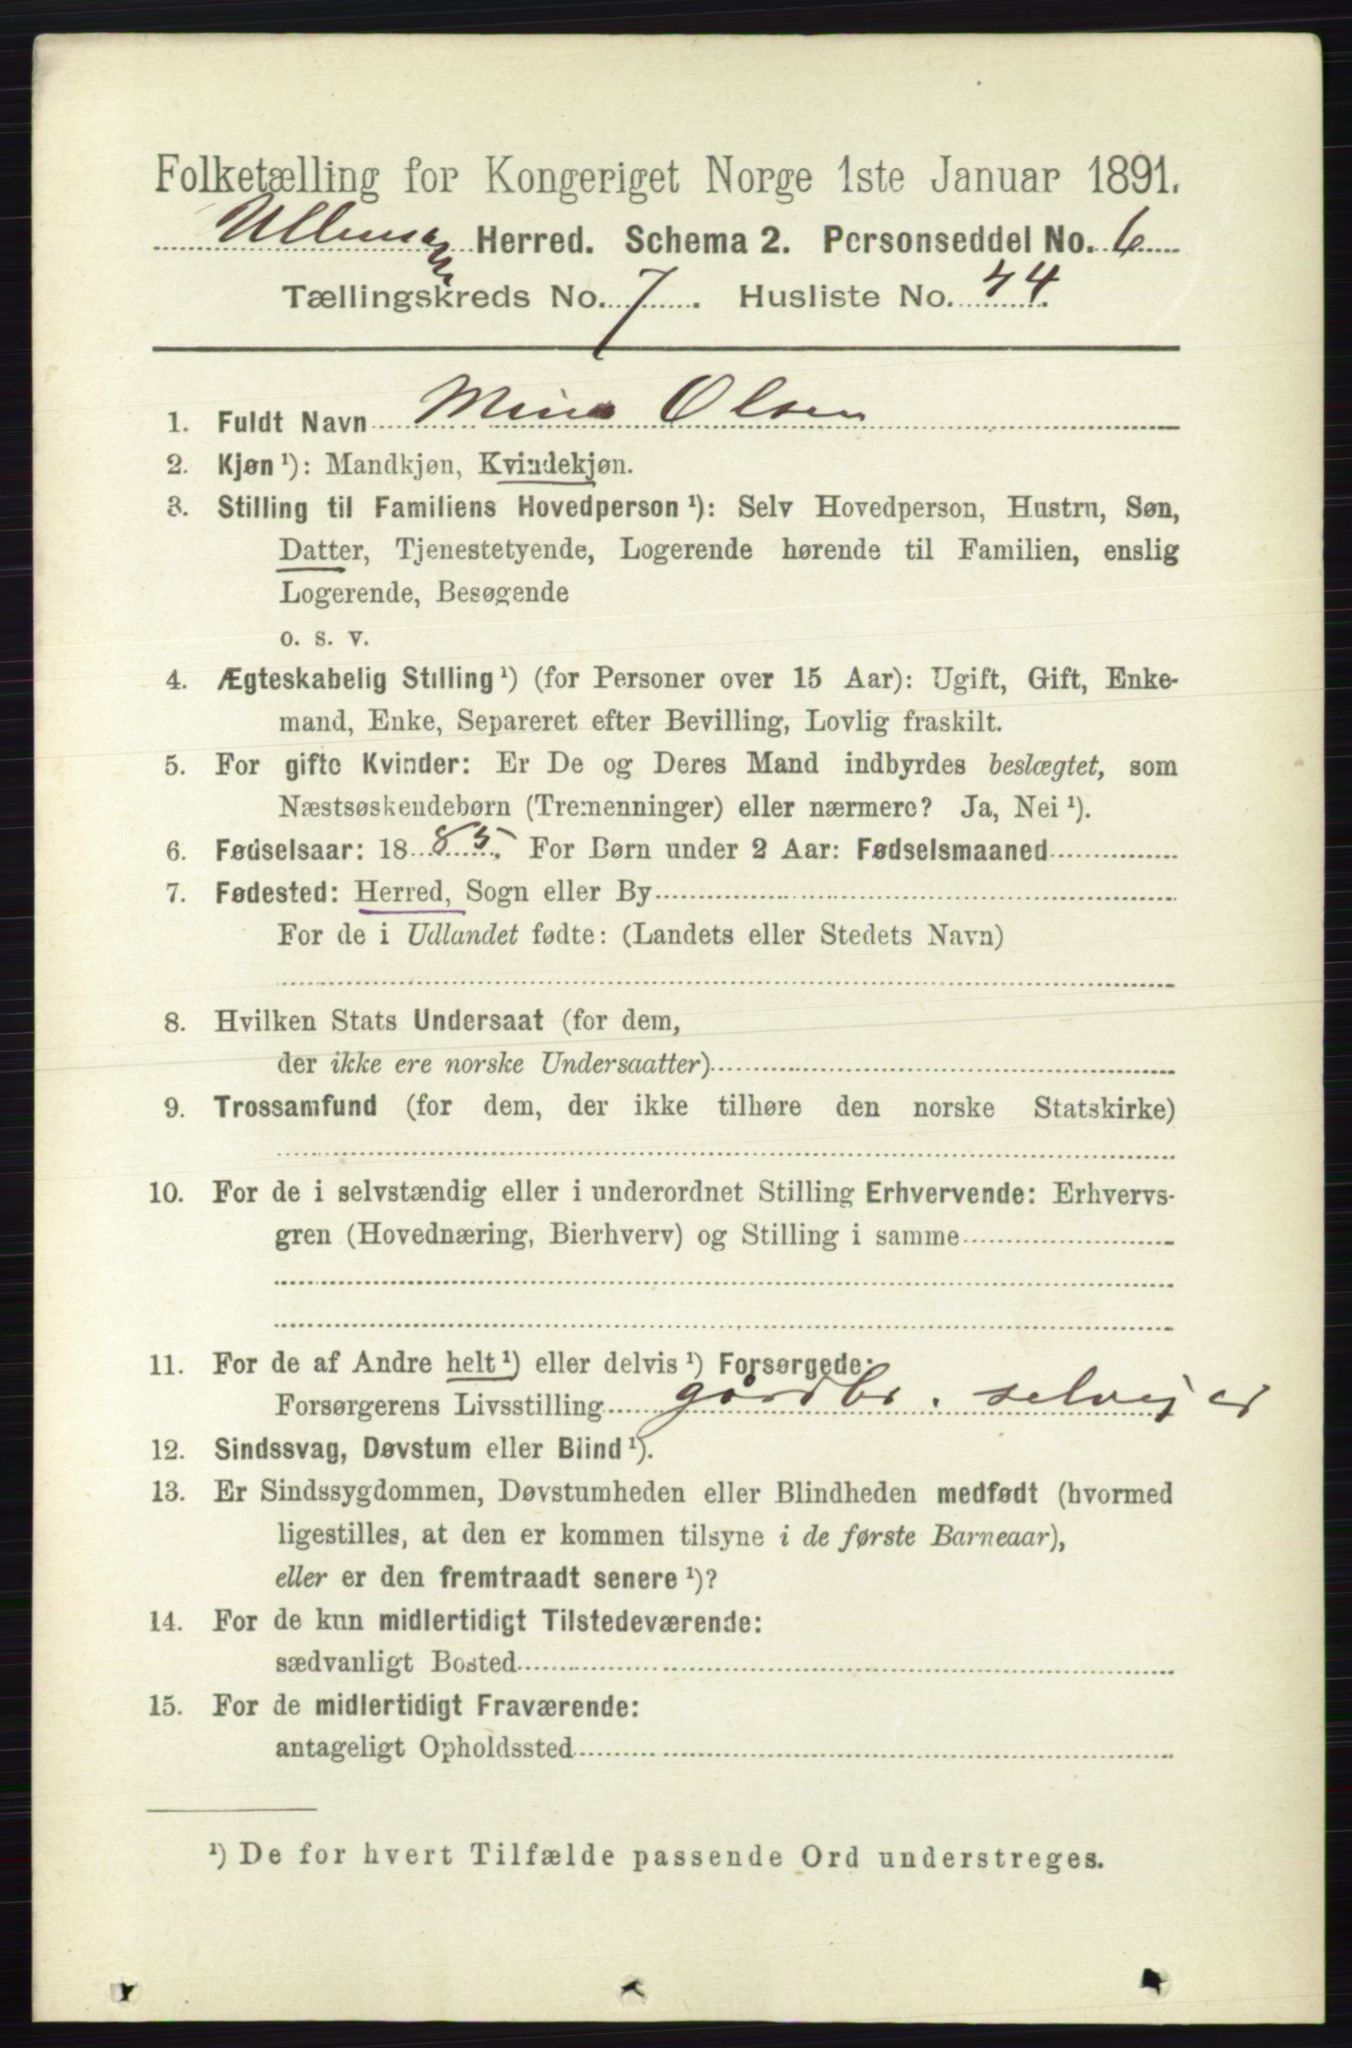 Folketælling for Kongeriget Norge 1ste Januar 1891.
Ullensaker Herred. Schema 2. Personseddel No. 6
Tællingskreds No. 7. Husliste No. 44.
1. Fuldt Navn Mina Olsen
2. Kjøn ¹): Mandkjøn, Kvindekjøn.
3. Stilling til Familiens Hovedperson ¹): Selv Hovedperson, Hustru, Søn,
Datter, Tjenestetyende, Logerende hørende til Familien, enslig
Logerende, Besøgende
o. s. v.
4. Ægteskabelig Stilling ¹) (for Personer over 15 Aar): Ugift, Gift, Enke-
mand, Enke, Separeret efter Bevilling, Lovlig fraskilt.
5. For gifte Kvinder: Er De og Deres Mand indbyrdes beslægtet, som
Næstsøskendebørn (Tremenninger) eller nærmere? Ja, Nei ¹).
6. Fødselsaar: 1885. For Børn under 2 Aar: Fødselsmaaned
7. Fødested: Herred, Sogn eller By
For de i Udlandet fødte: (Landets eller Stedets Navn)
8. Hvilken Stats Undersaat (for dem,
der ikke ere norske Undersaatter)
9. Trossamfund (for dem, der ikke tilhøre den norske Statskirke)
10. For de i selvstændig eller i underordnet Stilling Erhvervende: Erhvervs-
gren (Hovednæring, Bierhverv) og Stilling i samme
11. For de af Andre helt ¹) eller delvis ¹) Forsørgede:
Forsørgerens Livsstilling gårdbr. selvejer
12. Sindssvag, Døvstum eller Blind ¹).
13. Er Sindssygdommen, Døvstumheden eller Blindheden medfødt (hvormed
ligestilles, at den er kommen tilsyne i de første Barneaar),
eller er den fremtraadt senere ¹)?
14. For de kun midlertidigt Tilstedeværende:
sædvanligt Bosted
15. For de midlertidigt Fraværende:
antageligt Opholdssted
¹) De for hvert Tilfælde passende Ord understreges.